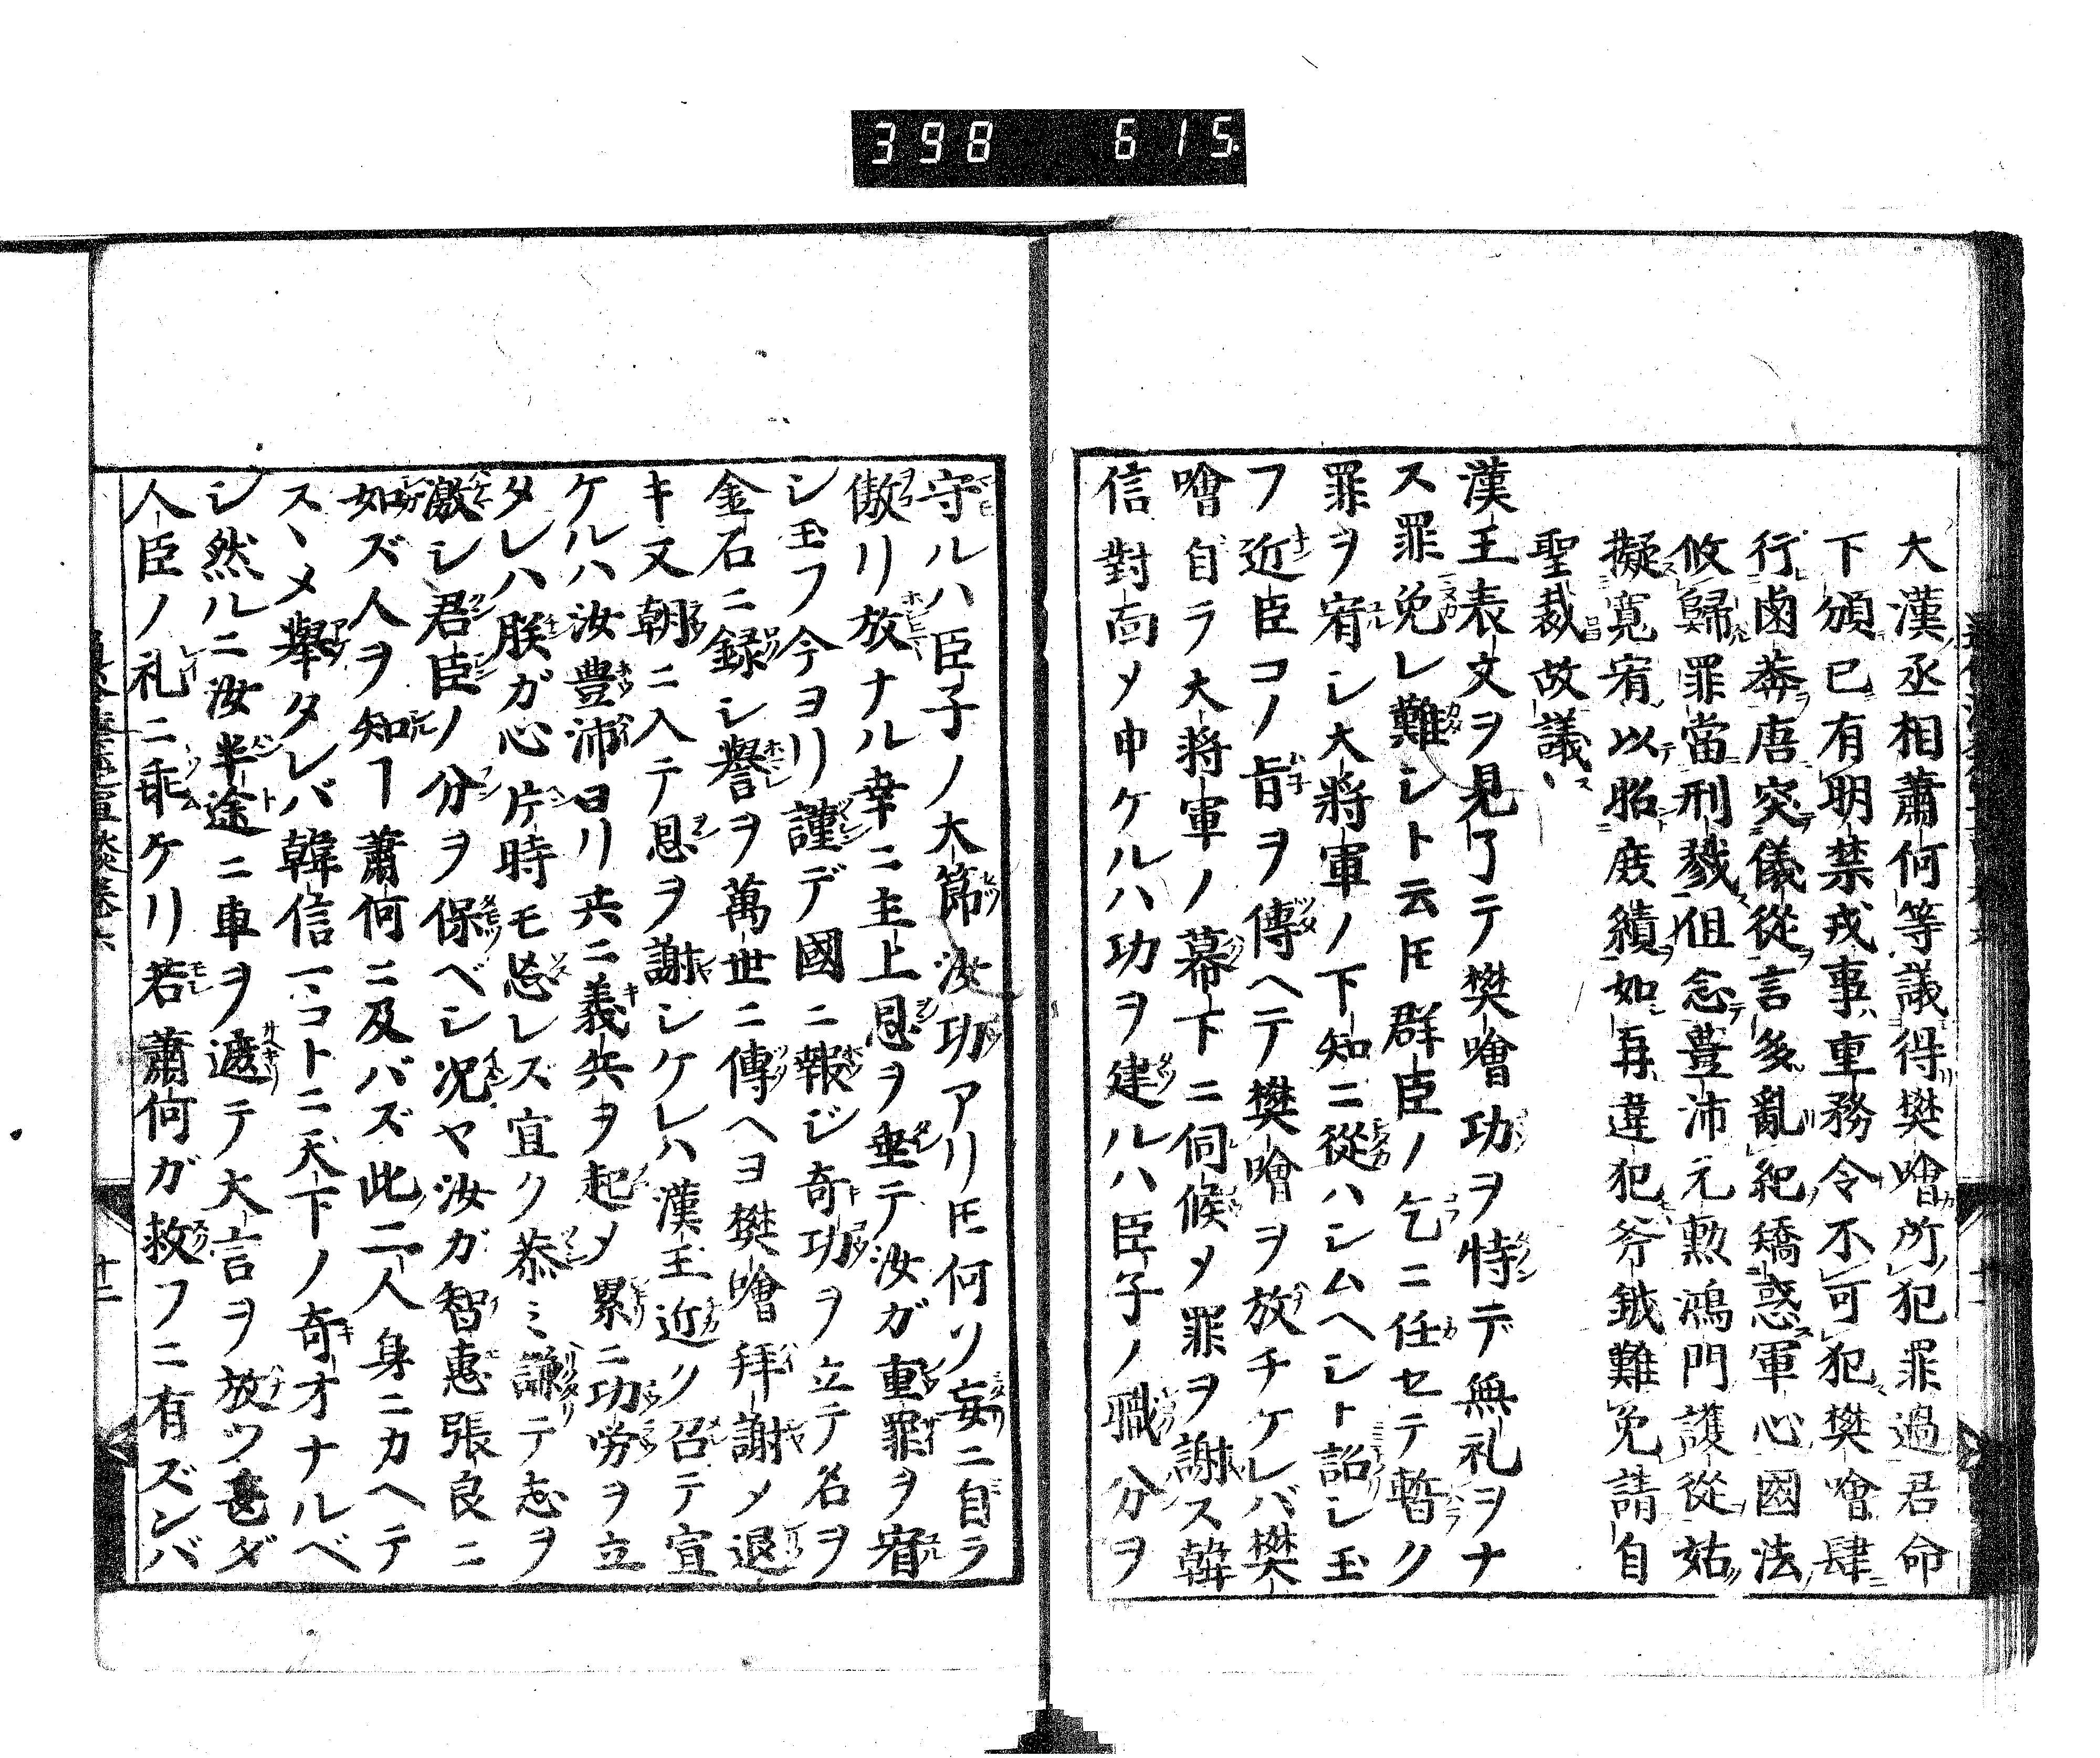 398 615
大漢丞相蕭何等議得樊噲所犯罪過君命
下頒已有明禁戎事重務令不可犯樊噲肆
行鹵莽唐突儀從言多亂紀矯惑軍心國法
攸歸罪當刑戮但念豊沛元勲鴻門護從姑
擬寛宥以昭庻績如再違犯斧鉞難免請自
聖裁故議
漢王表文ヲ見了テ樊噲功ヲ恃デ無礼ヲナ
ス罪免レ難シト云𪜈群臣ノ乞ニ任セテ暫ク
罪ヲ宥シ大將軍ノ下知ニ從ハシムヘシト詔シ玉
フ近臣コノ旨ヲ傳ヘテ樊噲ヲ放チケレバ樊
噲自ラ大將軍ノ幕下ニ伺候メ罪ヲ謝ス韓
信對面メ申ケルハ功ヲ建ルハ臣子ノ職分ヲ
守ルハ臣子ノ大節汝功アリ𪜈何ソ妄ニ自ラ
傲リ放ナル幸ニ主上恩ヲ垂テ汝ガ重罪ヲ宥
シ玉フ今ヨリ謹デ國ニ報ジ奇功ヲ立テ名ヲ
金石ニ録シ譽ヲ萬世ニ傳ヘヨ樊噲拜謝メ退
キ又朝ニ入テ恩ヲ謝シケレハ漢王近ク召テ宣
ケルハ汝豊沛ヨリ共ニ義兵ヲ起メ累ニ功労ヲ立
タレハ朕ガ心片時モ忘レス宜ク恭ミ謙テ志ヲ
激シ君臣ノ分ヲ保ベシ況ヤ汝ガ智惠張良ニ
如ズ人ヲ知ヿ蕭何ニ及バズ此二人身ニカヘテ
スヽメ擧タレバ韓信マコトニ天下ノ奇才ナルベ
シ然ルニ汝半途ニ車ヲ遮テ大言ヲ放ツ甚ダ
人臣ノ礼ニ乖ケリ若蕭何ガ救フニ有ズンバ
十二